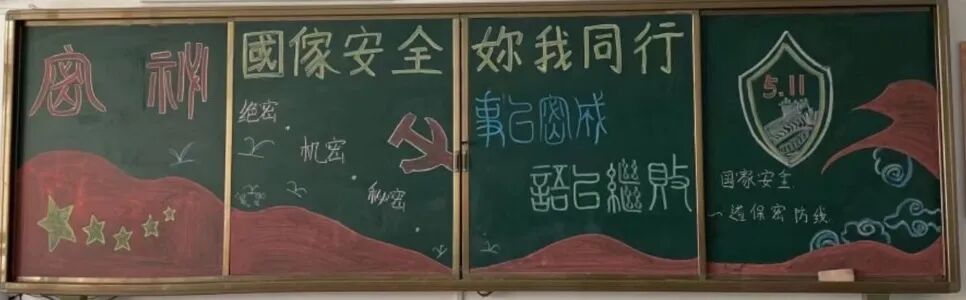 國傢安全
绝密
机密
秘密
妳我同行
事㠯密成
語㠯繼敗
5.11
国家安全
一道保密防线